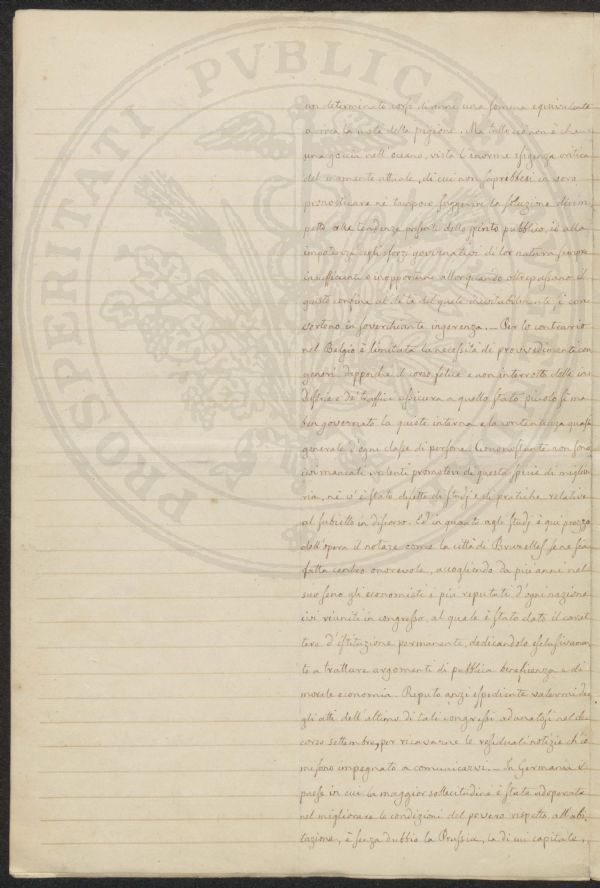 PROSPERITATI PVBLICAE
un determinato corso d'anni una somma equivalente
a circa la metà della pigione. Ma tutto ciò non è che
una goccia nell'oceano, vista l'enorme esigenza critica
del momento attuale, di cui non saprebbesi in vero
pronosticare nè tampoco suggerire la soluzione dirim-
petto alle tendenze presenti dello spirito pubblico, ed alla
impotenza degli sforzi governativi di lor natura sempre
insufficienti e inopportuni allorquando oltrepassano il
giusto confine al di là del quale inevitabilmente si con-
vertono in soverchiante ingerenza. — Per lo contrario
nel Belgio è limitata la necessità di provvedimenti con-
generi dappoichè il corso felice e non interrotto delle in-
dustrie e de' traffici assicura a quello stato piccolo sì ma
ben governato la quiete interna e la contentezza quasi
generale d'ogni classe di persone. Ciononostante non sono
ivi mancati valenti promotori di questa specie di miglio-
ria, nè v'è stato difetto di studj e di pratiche relative
al subietto in discorso. Ed in quanto agli studj è qui prezzo
dell'opera il notare come la città di Bruxelles se ne sia
fatta centro onorevole, accogliendo da più anni nel
suo seno gli economisti i più reputati d'ogni nazione
ivi riuniti in congresso, al quale è stato dato il carat-
tere d'istituzione permanente, dedicandolo esclusivamen-
te a trattare argomenti di pubblica beneficenza e di
morale economia. Reputo anzi espediente valermi de-
gli atti dell'ultimo di tali congressi adunatosi nel de-
corso settembre, per ricavarne le residuali notizie ch'io
mi sono impegnato a comunicarvi. — In Germania il
paese in cui la maggior sollecitudine è stata adoperata
nel migliorare le condizioni del povero rispetto all'abi-
tazione, è senza dubbio la Prussia, la di cui capitale,